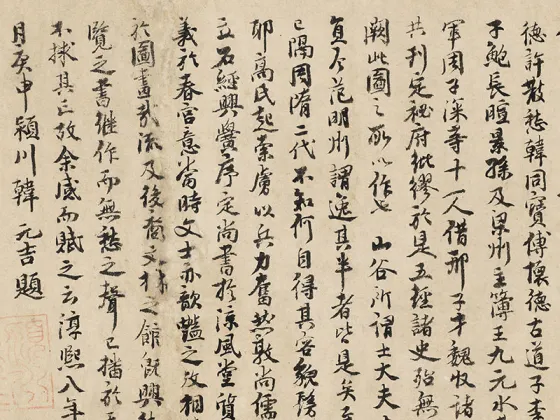 德許散愁韓同寶傅懷德古道子李
子鮑長暄景孫及梁州主簿王九元水
軍周子深等十一人借邢子才魏收諸
共刊定秘府紕繆於是五經諸史殆無
闕此圖之所以作也山谷所謂士大夫
員今范明州謂逸其半者皆是矣至
已隔周隋二代不知何自得其容貌髣
耶高氏起索虜以兵力奮然敦尚儒
立石經興黌序定尚書於涼風堂質
義於春宮意當時文士亦歆豔之故相
於圖畫哉流及後齊文林之館既興
覽之書繼作而無愁之聲已播於
不捄其亡故余感而賦之云淳熙八年
月庚申潁川韓元吉題